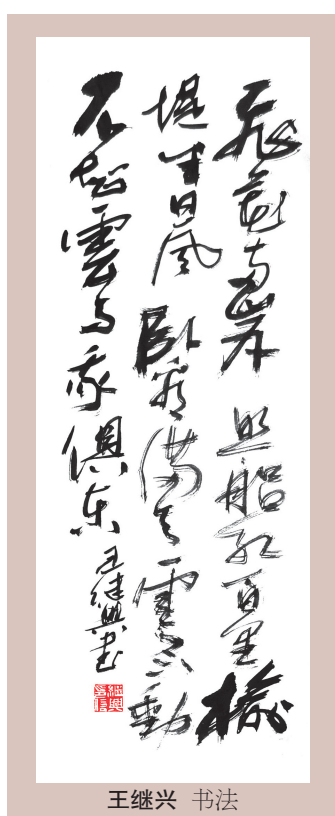 飛花两岸照船红百里榆
堤半日風卧看满天雲不動
不知雲与我俱东王继興书
王继兴 书法